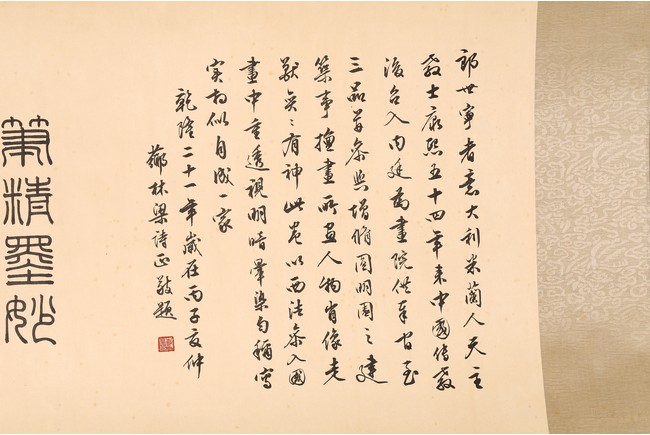 郎世寧者意大利米蘭人天主
教士康熙五十四年來中國傳教
後召入內廷為畫院供奉官至
三品曾參與增脩圓明園之建
築事擅畫所畫人物肖像走
獸奕〻有神此卷以西法參入國
畫中重透視明暗暈染勻稱寫
實似自成一家
乾隆二十一年歲在丙子夏仲
薌林梁詩正敬題
筆精墨妙